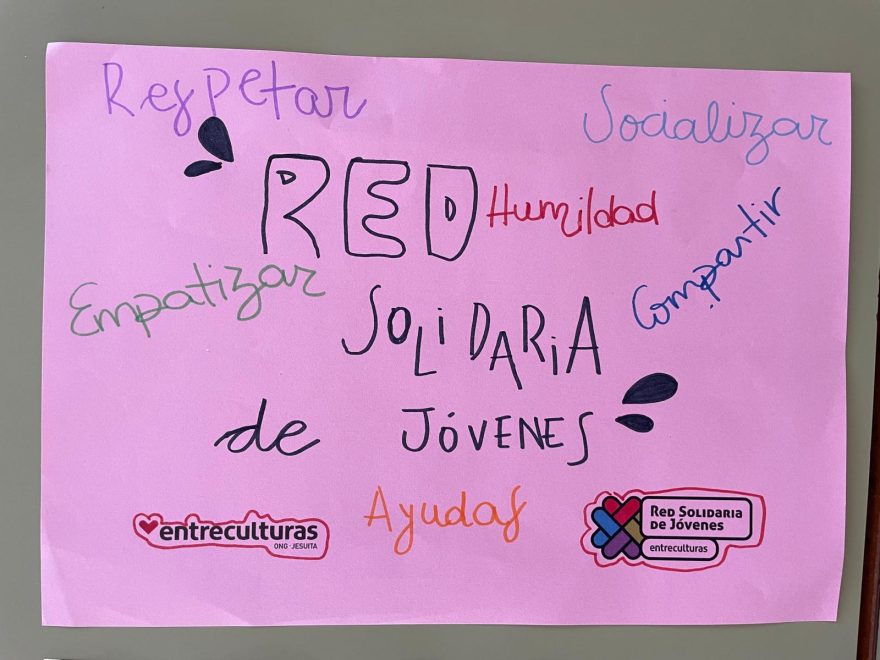 Respetar
Socializar
RED
Humildad
Compartir
Empatizar
SOLiDARiA
de JÓVENES
Ayudas
entreculturas
ONG · JESUITA
RED SOLIDARIA
DE JÓVENES
entreculturas